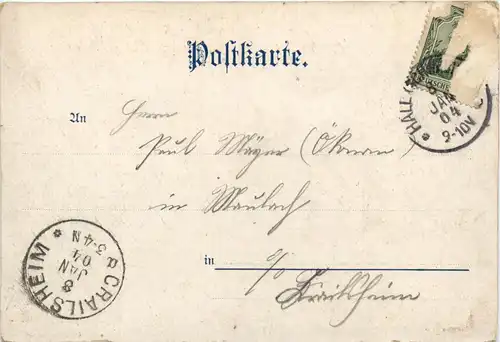 Postkarte.
An Herrn
Paul Mayer (Ökonom)
in Maulach
in o/o
Crailsheim
HALL (
JAN
04
9-10V
CRAILSHEIM
8
JAN
04
3-4N